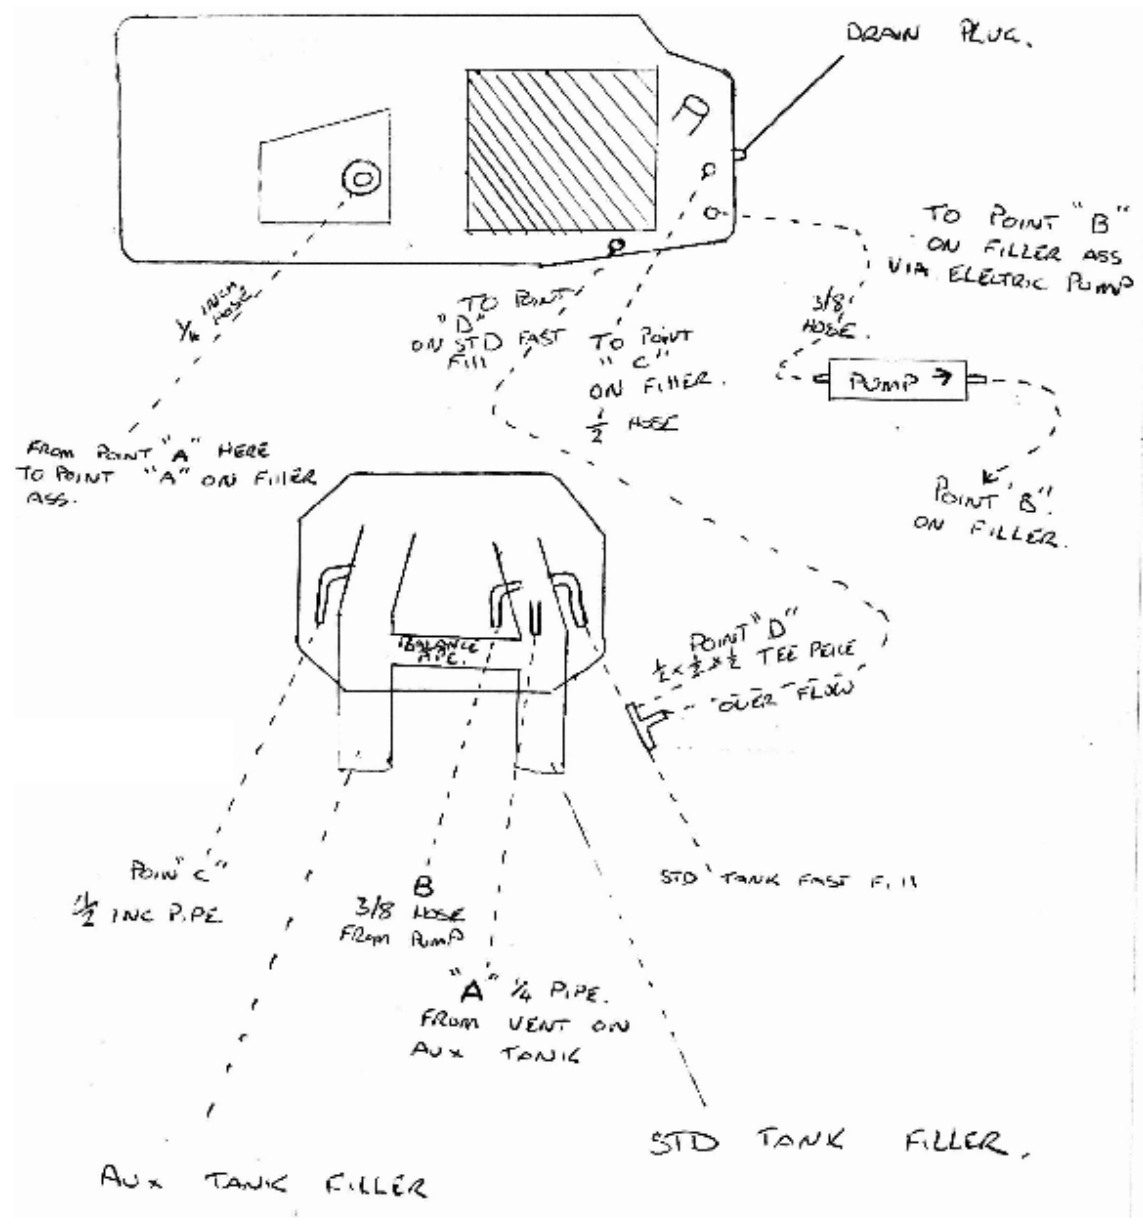 DRAIN PLUG.
TO POINT "B"
ON FILLER ASS
VIA ELECTRIC PUMP
1/4 INCH
HOSE
TO POINT
"D"
ON STD FAST
FILL
TO POINT
"C"
ON FILLER.
1/2 HOSE
3/8
HOSE.
PUMP →
FROM POINT "A" HERE
TO POINT "A" ON FILLER
ASS.
POINT "B".
ON FILLER.
BALANCE
PIPE.
POINT "D"
1/2 x 1/2 x 1/2 TEE PEICE
OVER FLOW
POIN "C"
1/2 INC PIPE
B
3/8 HOSE
FROM PUMP
STD TANK FAST FILL
"A" 1/4 PIPE.
FROM VENT ON
AUX TANK
STD TANK FILLER.
AUX TANK FILLER